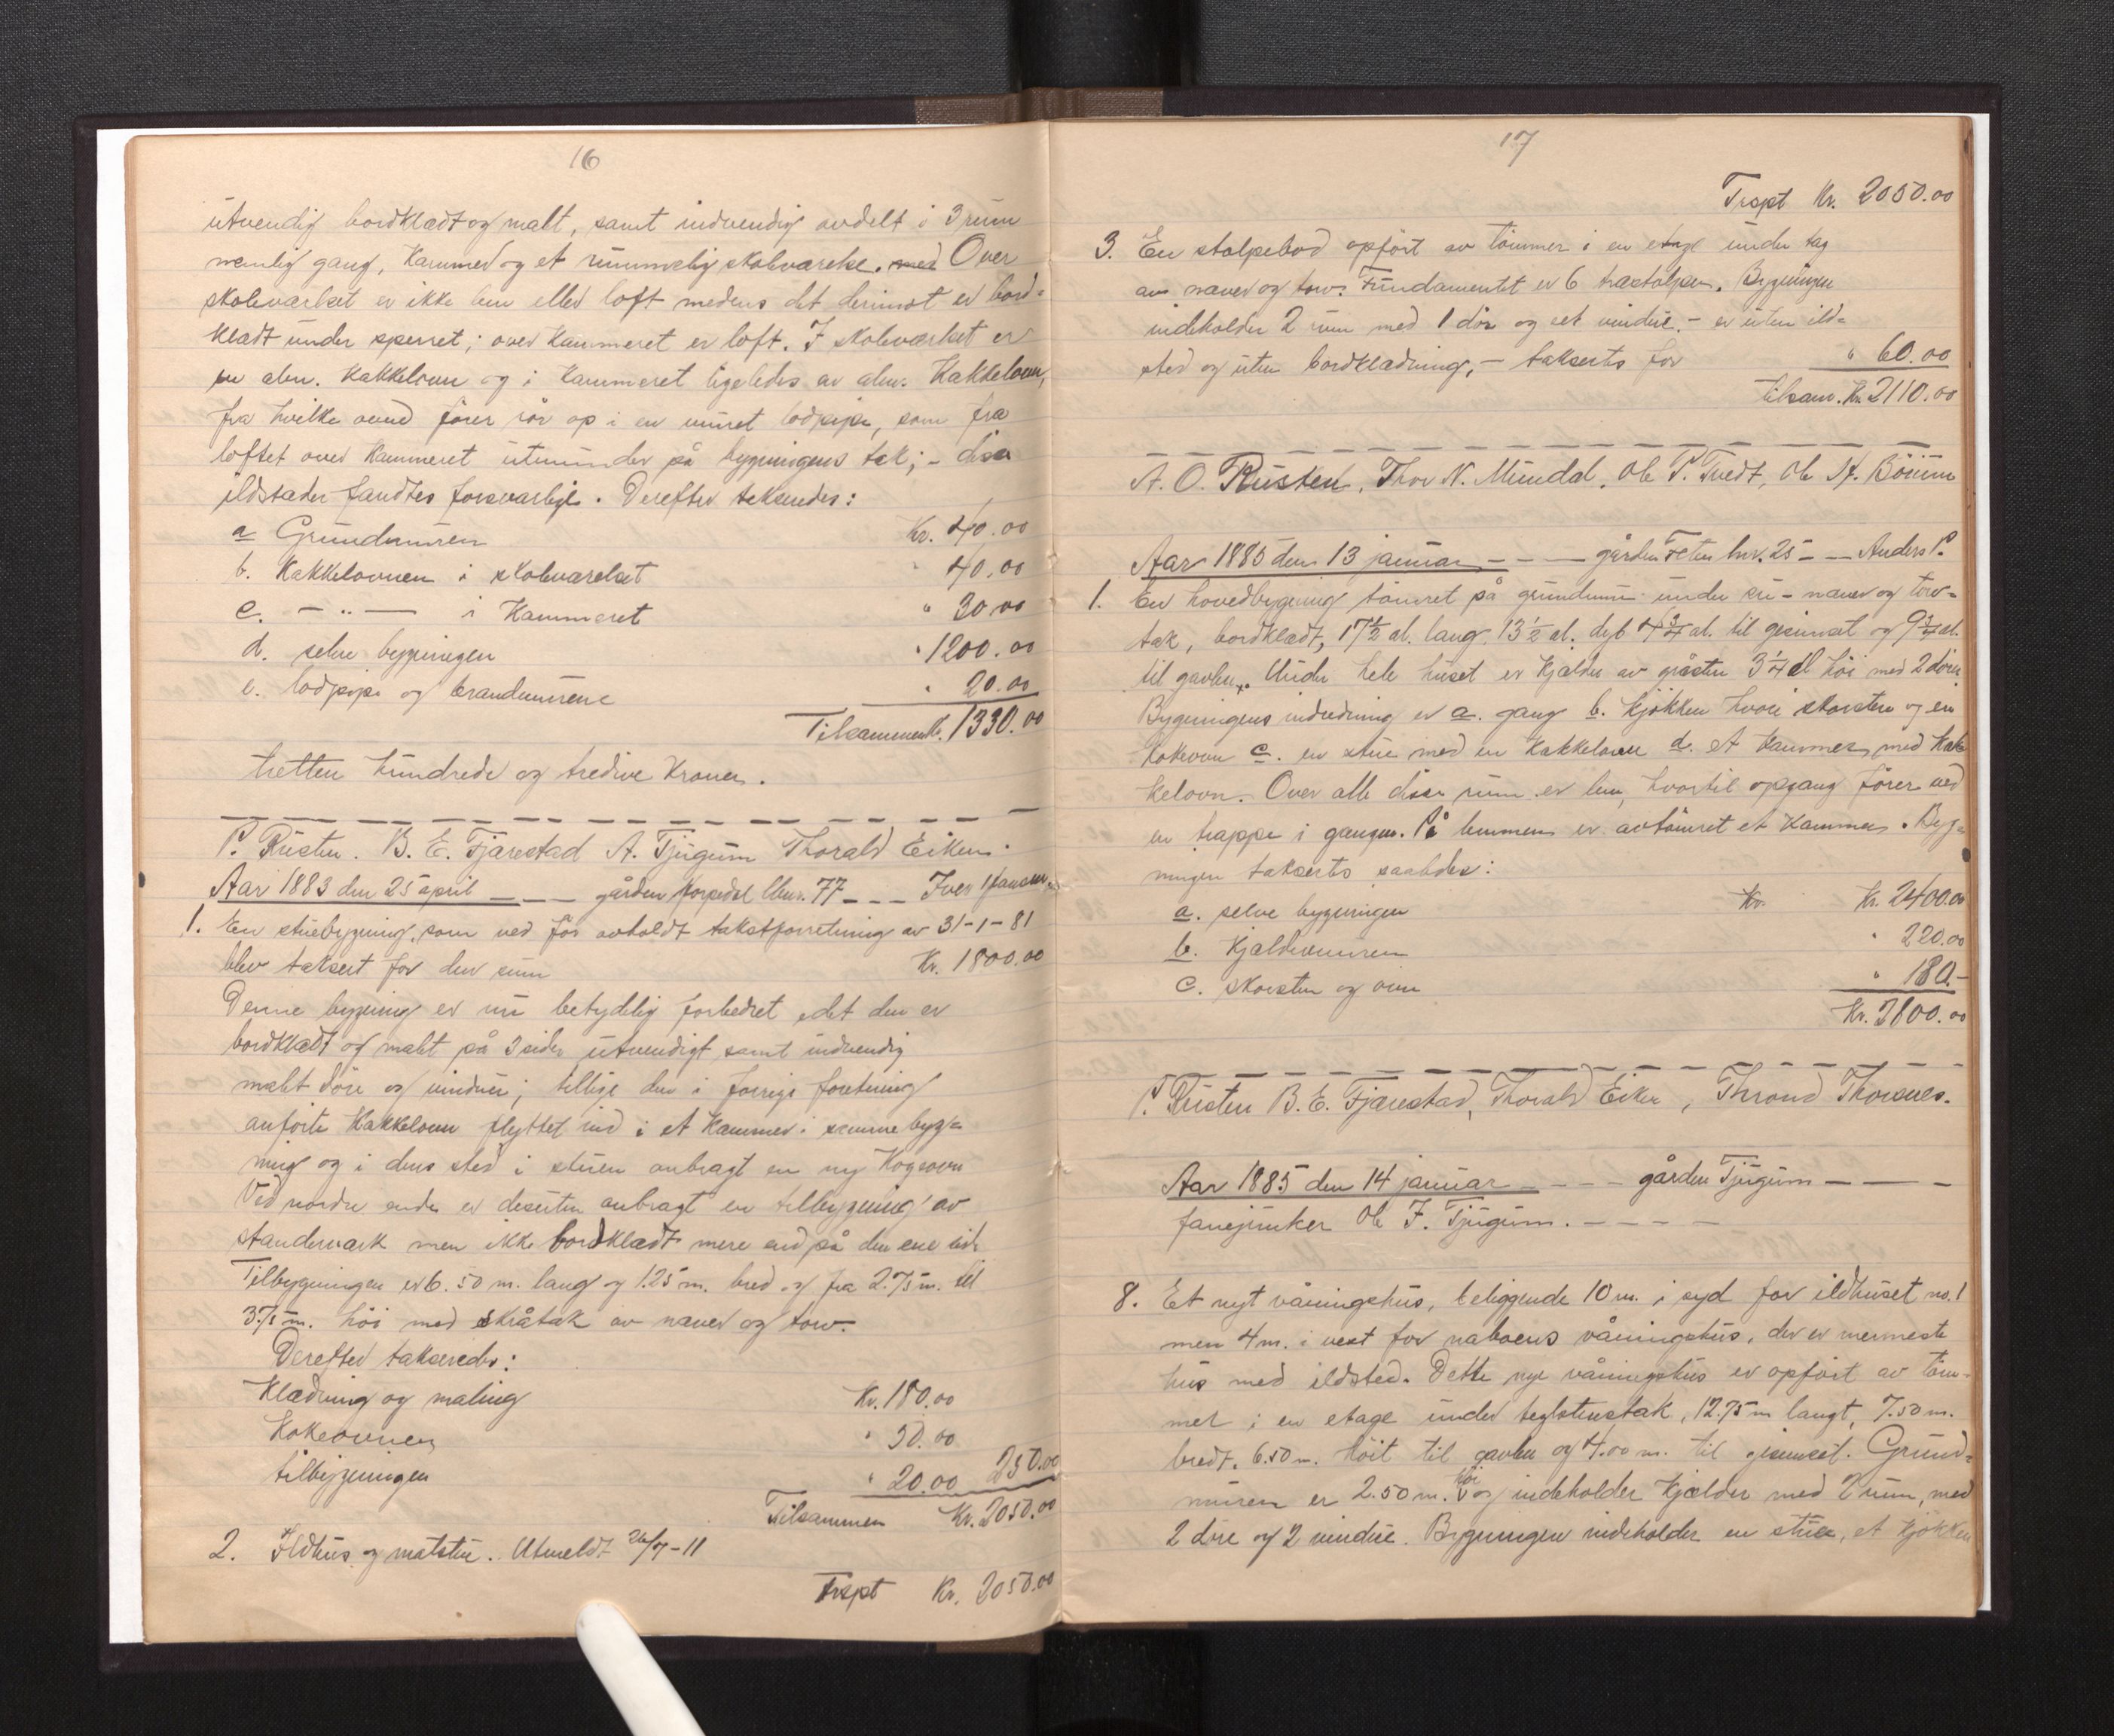 16
utvendig bordklædt og malt, samt indvendig avdelt i 3 rum
nemlig gang, kammed og et rummelig skoleværelse. med Over
skoleværelset er ikke lem eller loft medens det derimot er bord-
klædt under sperret; over kammeret er loft. I skoleværelset er
en alm. kakkelovn og i kammeret ligeledes av alm. kakkelovn,
fra hvilke ovne fører rör op i en muret lodpipe, som fra
loftet over kammeret utmunder på bygningens tak; - disse
ildstæder fandtes forsvarlige. Derefter takseredes:
a Grundmuren Kr. 40.00
b. Kakkelovnen i skoleværelset " 40.00
c. - " - i Kammeret " 30.00
d. selve bygningen " 1200.00
e. lodpipe og brandmurene " 20.00
Tilsammen Kr. 1330.00
tretten hundrede og tredive Kroner.
P. Rusten. B. E. Fjærestad A. Tjugum Thorald Eiken.
Aar 1883 den 25 april - - - gården Kvepedal lbnr. 77 - - - Iver
1. En stuebygning, som ved för avholdt takstforretning av 31-1-81
blev taksert for den sum Kr. 1800.00
Denne bygning er nu betydelig forbedret idet den er
bordklædt og malt på 3 sider utvendigt samt indvendig
malt döre og vinduer; tillige den i forrige forretning
anförte kakkelovn flyttet ind i et kammer i samme byg-
ning og i dens sted i stuen anbragt en ny kogeovn
Ved nordre ende er desuten anbragt en tilbygning av
standerverk men ikke bordklædt mere end på den ene side
Tilbygningen er 6.50 m. lang og 1.25 m. bred og fra 2.75 m. til
3.75 m. höi med skråtak av never og torv.
Derefter takseredes:
Klædning og maling Kr. 180.00
Kokeovnen " 50.00
tilbygningen " 20.00 250.00
Tilsammen Kr. 2050.00
2. Ildhus og matstue. Utmeldt 26/7-11
Trspt Kr. 2050.00
17
Trspt Kr. 2050.00
3. En stolpebod opfört av tömmer i en etage under tag
av never og torv. Fundamentet er 6 træstolper. Bygningen
indeholder 2 rum med 1 dör og et vindue, - er uten ild-
sted og uten bordklædning, - takserts for " 60.00
tilsam. Kr. 2110.00
A. O. Rusten, Thor N. Mundal, Ole P. Tvedt, Ole H. Böium
Aar 1885 den 13 januar - - - gården Feten lnr. 25 - - Anders P.
1. En hovedbygning tömret på grundmur under su- never og torv-
tak, bordklædt, 17½ al. lang 13½ al. dyb 4¾ al. til gesimset og 9¾ al.
til gavlen. Under hele huset er kjelder av gråsten 3¼ al höi med 2 döre
Bygningens indredning er a. gang b. kjökken hvori skorsten og en
kokeovn c. en stue med en kakkelovn d. et kammer med kak-
kelovn. Over alle disse rum er lem, hvortil opgang förer ved
en trappe i gangen. På lemmen er avtömret et kammer. Byg-
ningen takserts saaledes:
a. selve bygningen Kr. Kr. 2400.00
b. kjeldermuren " 220.00
c. skorsten og ovn " 180.-
Kr. 2800.00
P. Rusten B. E. Fjærestad, Thorald Eiken, Thrond Thorsnes.
Aar 1885 den 14 januar - - - - gården Tjugum - - -
fanejunker Ole J. Tjugum. - - - -
8. Et nyt våningshus, beliggende 10 m. i syd for ildhuset no. 1
men 4 m. i vest for naboens våningshus, der er nermeste
hus med ildsted. Dette nye våningshus er opfört av töm-
mer i en etage under teglstenstak, 12.75 m langt, 7.50 m.
bredt, 6.50 m. höit til gavlen og 4.00 m. til gesimset. Grund-
muren er 2.50 m. höi og indeholder kjelder med 2 rum, med
2 döre og 2 vindue. Bygningen indeholder en stue, et kjökken